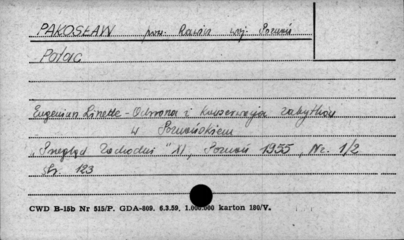 PAKOSŁAW pow. Rawicz woj. Poznań
Pałac
Eugeniusz Linette - Ochrona i konserwacja zabytków
w Poznańskiem
"Przegląd Zachodni" XI, Poznań 1955, Nr. 1/2
Str. 123
CWD B-15b Nr 515/P. GDA-809. 6.3.59, 1.000.000 karton 180/V.